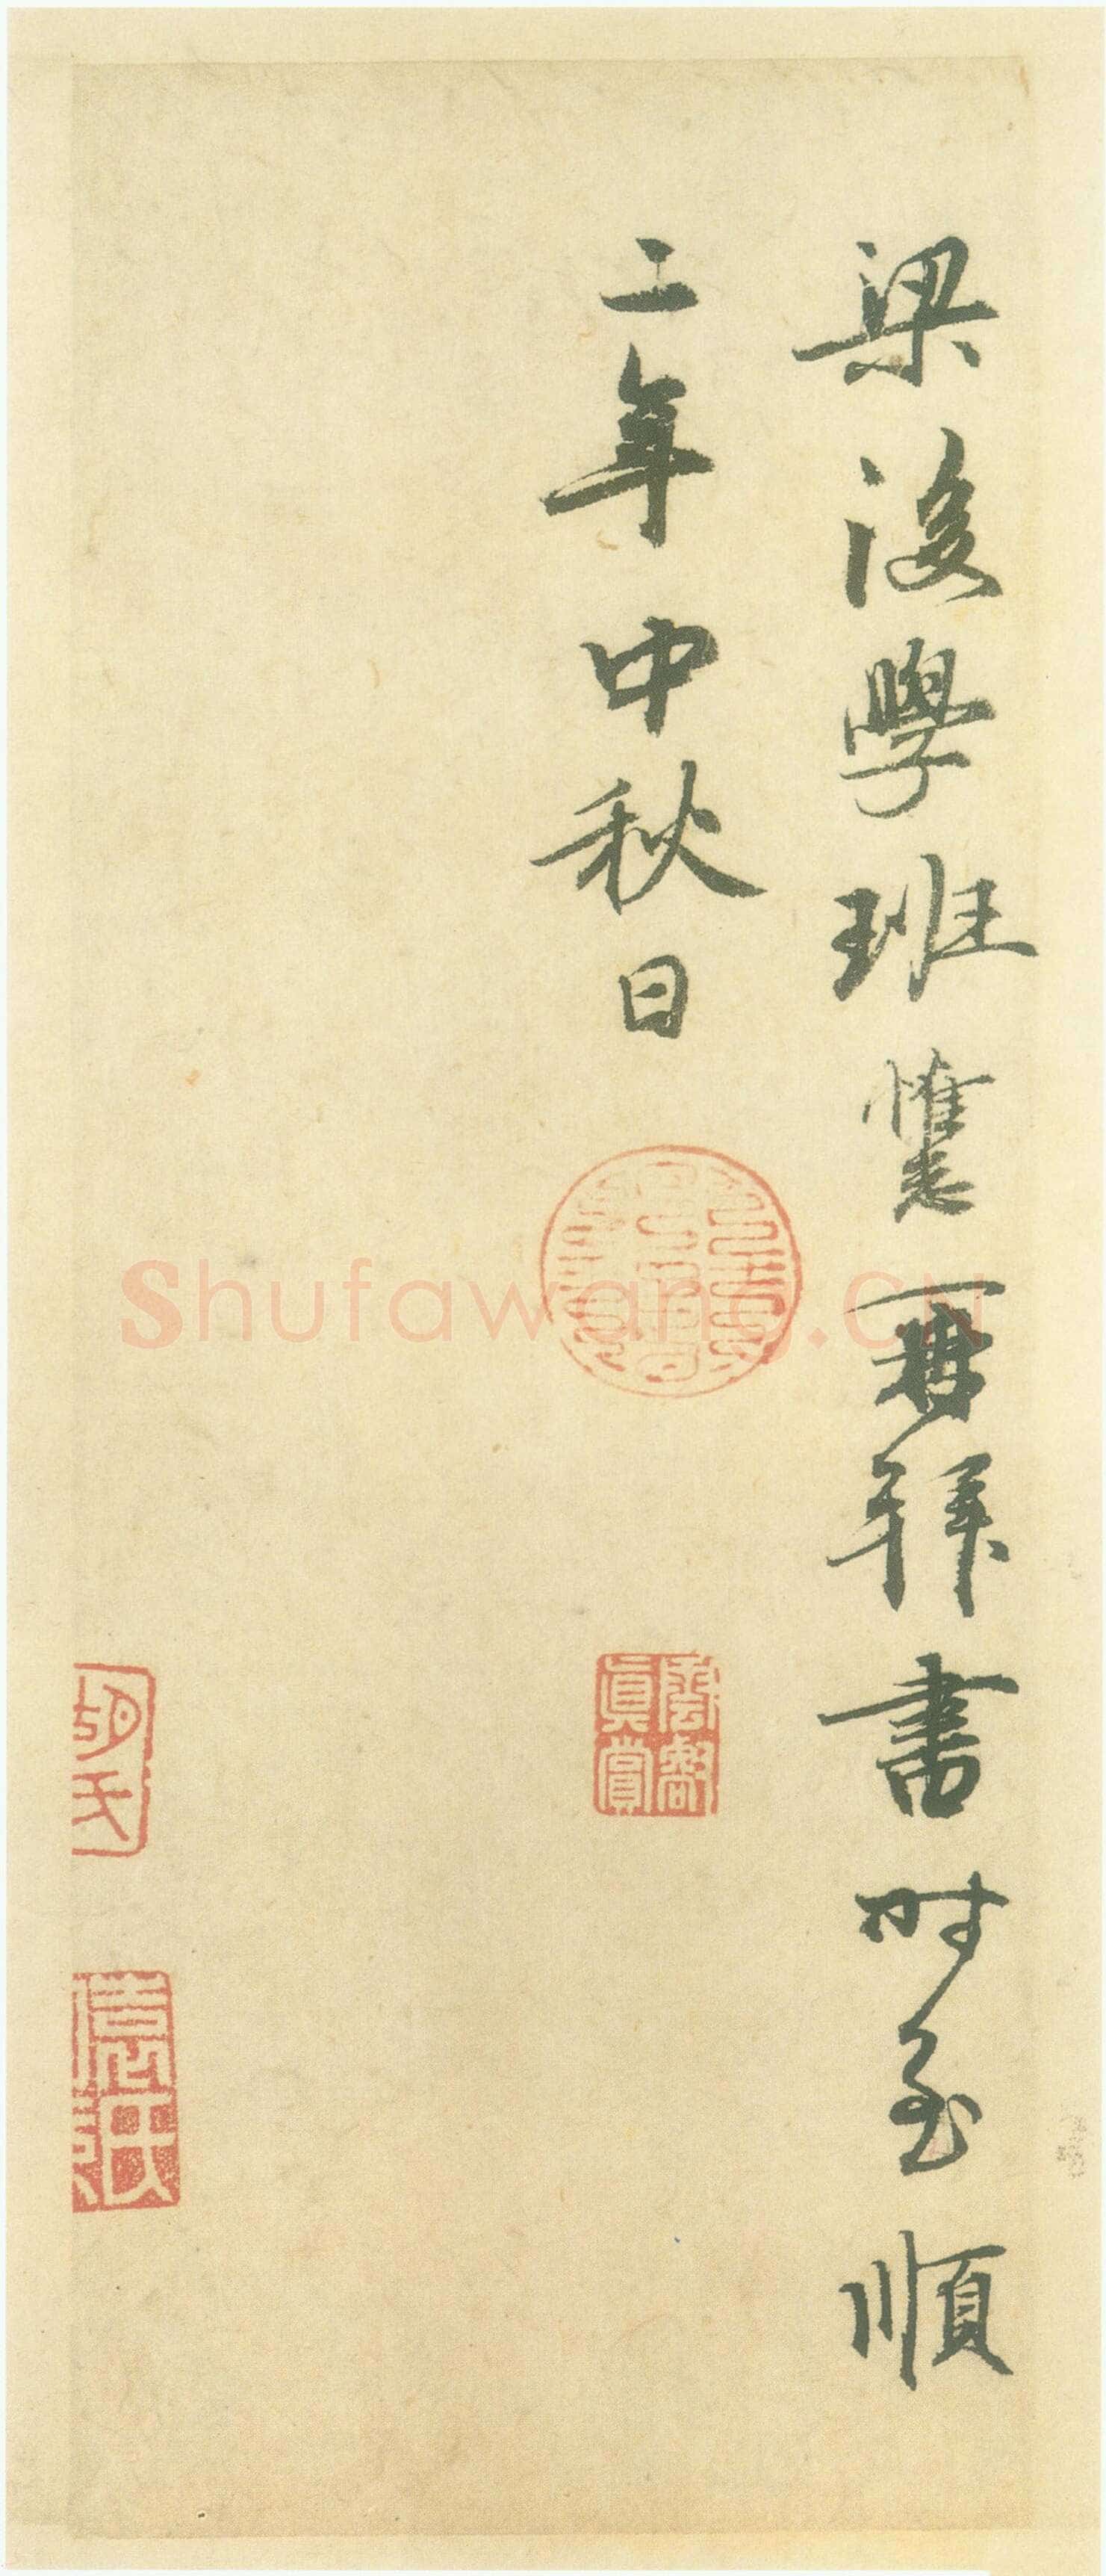 梁後學班惟志再拜書時至順
二年中秋日
眞賞
Shufawang.CN